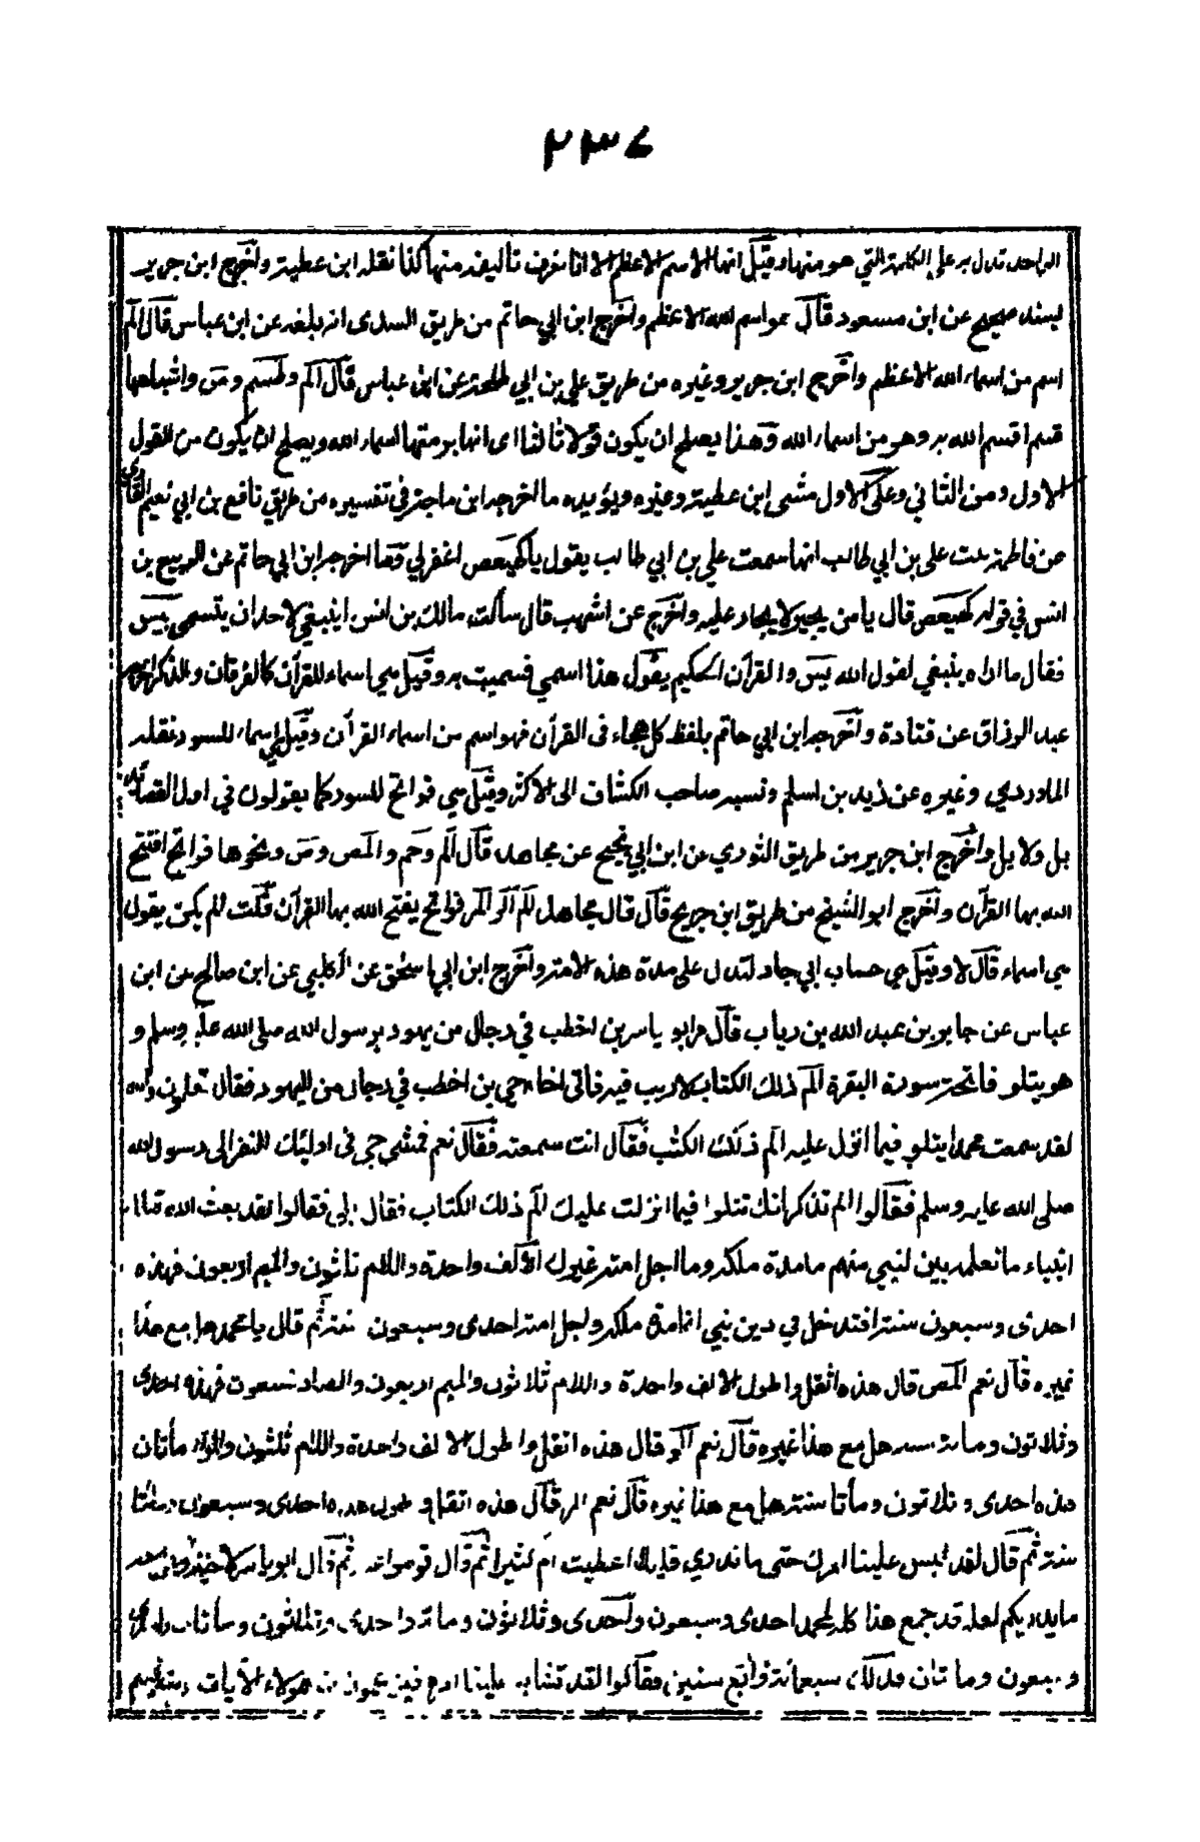 ٢٣٤
الواحد تدل به على الكلمة التي هو منها وقيل انها الاسم الاعظم الا انا نعرف تأليفه منها كذا نقله ابن عطية واخرج ابن جرير
بسند صحيح عن ابن مسعود قال هو اسم الله الاعظم واخرج ابن ابي حاتم من طريق السدى انه بلغه عن ابن عباس قال الم
اسم من اسماء الله الاعظم واخرج ابن جرير وغيره من طريق علي بن ابي طلحة عن ابن عباس قال الم وطسم وص واشباهها
قسم اقسم الله به وهو من اسماء الله وهذا يصلح ان يكون قولا ثالثا اى انها برمتها اسماء الله ويصلح ان يكون من القول
الاول ومن الثاني وعلى الاول مشى ابن عطية وغيره ويؤيده ما اخرجه ابن ماجة في تفسيره من طريق نافع بن ابي نعيم القارى
عن فاطمة بنت على بن ابي طالب انها سمعت علي بن ابي طالب يقول يا كهيعص اغفر لي وما اخرجه ابن ابي حاتم عن الربيع بن
انس في قوله كهيعص قال يا من يجير ولا يجار عليه واخرج عن اشهب قال سألت مالك بن انس اينبغي لاحد ان يتسمى بيس
فقال ما اراه ينبغي لقول الله يس والقرآن الحكيم يقول هذا اسمي تسميت به وقيل هي اسماء للقرآن كالفرقان والذكر اخرجه
عبد الرزاق عن قتادة واخرجه ابن ابي حاتم بلفظ كل هجاء فى القرآن فهو اسم من اسماء القرآن وقيل هي اسماء للسور نقله
الماوردي وغيره عن زيد بن اسلم ونسبه صاحب الكشاف الى الاكثر وقيل هي فواتح للسور كما يقولون في اول القصائد
بل ولا بل واخرج ابن جرير من طريق الثوري عن ابن ابي نجيح عن مجاهد قال الم وحم والمص وص ونحوها فواتح افتتح
الله بها القرآن واخرج ابو الشيخ من طريق ابن جريج قال قال مجاهد الم الر المر فواتح يفتح الله بها القرآن قلت الم يكن يقول
هي اسماء قال لا وقيل هي حساب ابي جاد لتدل على مدة هذه الامة واخرج ابن ابي اسحٰق عن الكلبي عن ابن صالح عن ابن
عباس عن جابر بن عبد الله بن رياب قال مر ابو ياسر بن اخطب في رجال من يهود برسول الله صلى الله عليه وسلم و
هو يتلو فاتحة سورة البقرة الم ذلك الكتاب لا ريب فيه فاتى اخاه حيى بن اخطب في رجال من اليهود فقال تعلمون والله
لقد سمعت محمدا يتلو فيما انزل عليه الم ذلك الكتٰب فقال انت سمعته فقال نعم فمشى حيى فى اولئك النفر الى رسول الله
صلى الله عليه وسلم فقالوا الم تذكر انك تتلوا فيما انزلت عليك الم ذلك الكتاب فقال بلى فقالوا لقد بعث الله قبلك
انبياء ما نعلمه بين لنبي منهم ما مدة ملكه وما اجل امته غيرك الالف واحدة واللام ثلثون والميم اربعون فهذه
احدى وسبعون سنة افندخل في دين نبي انما مدة ملكه واجل امته احدى وسبعون سنة ثم قال يا محمد هل مع هذا
غيره قال نعم المص قال هذه اثقل واطول الالف واحدة واللام ثلاثون والميم اربعون والصاد تسعون فهذه احدى
وثلاثون ومائة سنة هل مع هذا غيره قال نعم الر قال هذه اثقل واطول الالف واحدة واللام ثلثون والراء مأتان
هذه احدى وثلاثون ومأتا سنة هل مع هذا غيره قال نعم المر قال هذه اثقل واطول هذه احدى وسبعون ومأتا
سنة ثم قال لقد لبس علينا امرك حتى ما ندري قليلا اعطيت ام كثيرا ثم قال قوموا عنه ثم قال ابو ياسر لاخيه ومن معه
ما يدريكم لعله قد جمع هذا كله لمحمد احدى وسبعون واحدى وثلاثون ومائة واحدى وثلاثون ومأتان واحدى
وسبعون ومائتان فذلك سبعمائة واربع سنين فقالوا لقد تشابه علينا امره فيزعمون ان هولاء الآيات نزلت فيهم